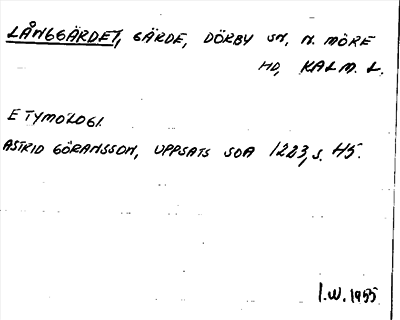 LÅNGGÄRDET, GÄRDE, DÖRBY SN, N. MÖRE
HD, KALM. L.
ETYMOLOGI.
ASTRID GÖRANSSON, UPPSATS SOA 1223, S. 45.
I.W. 1955